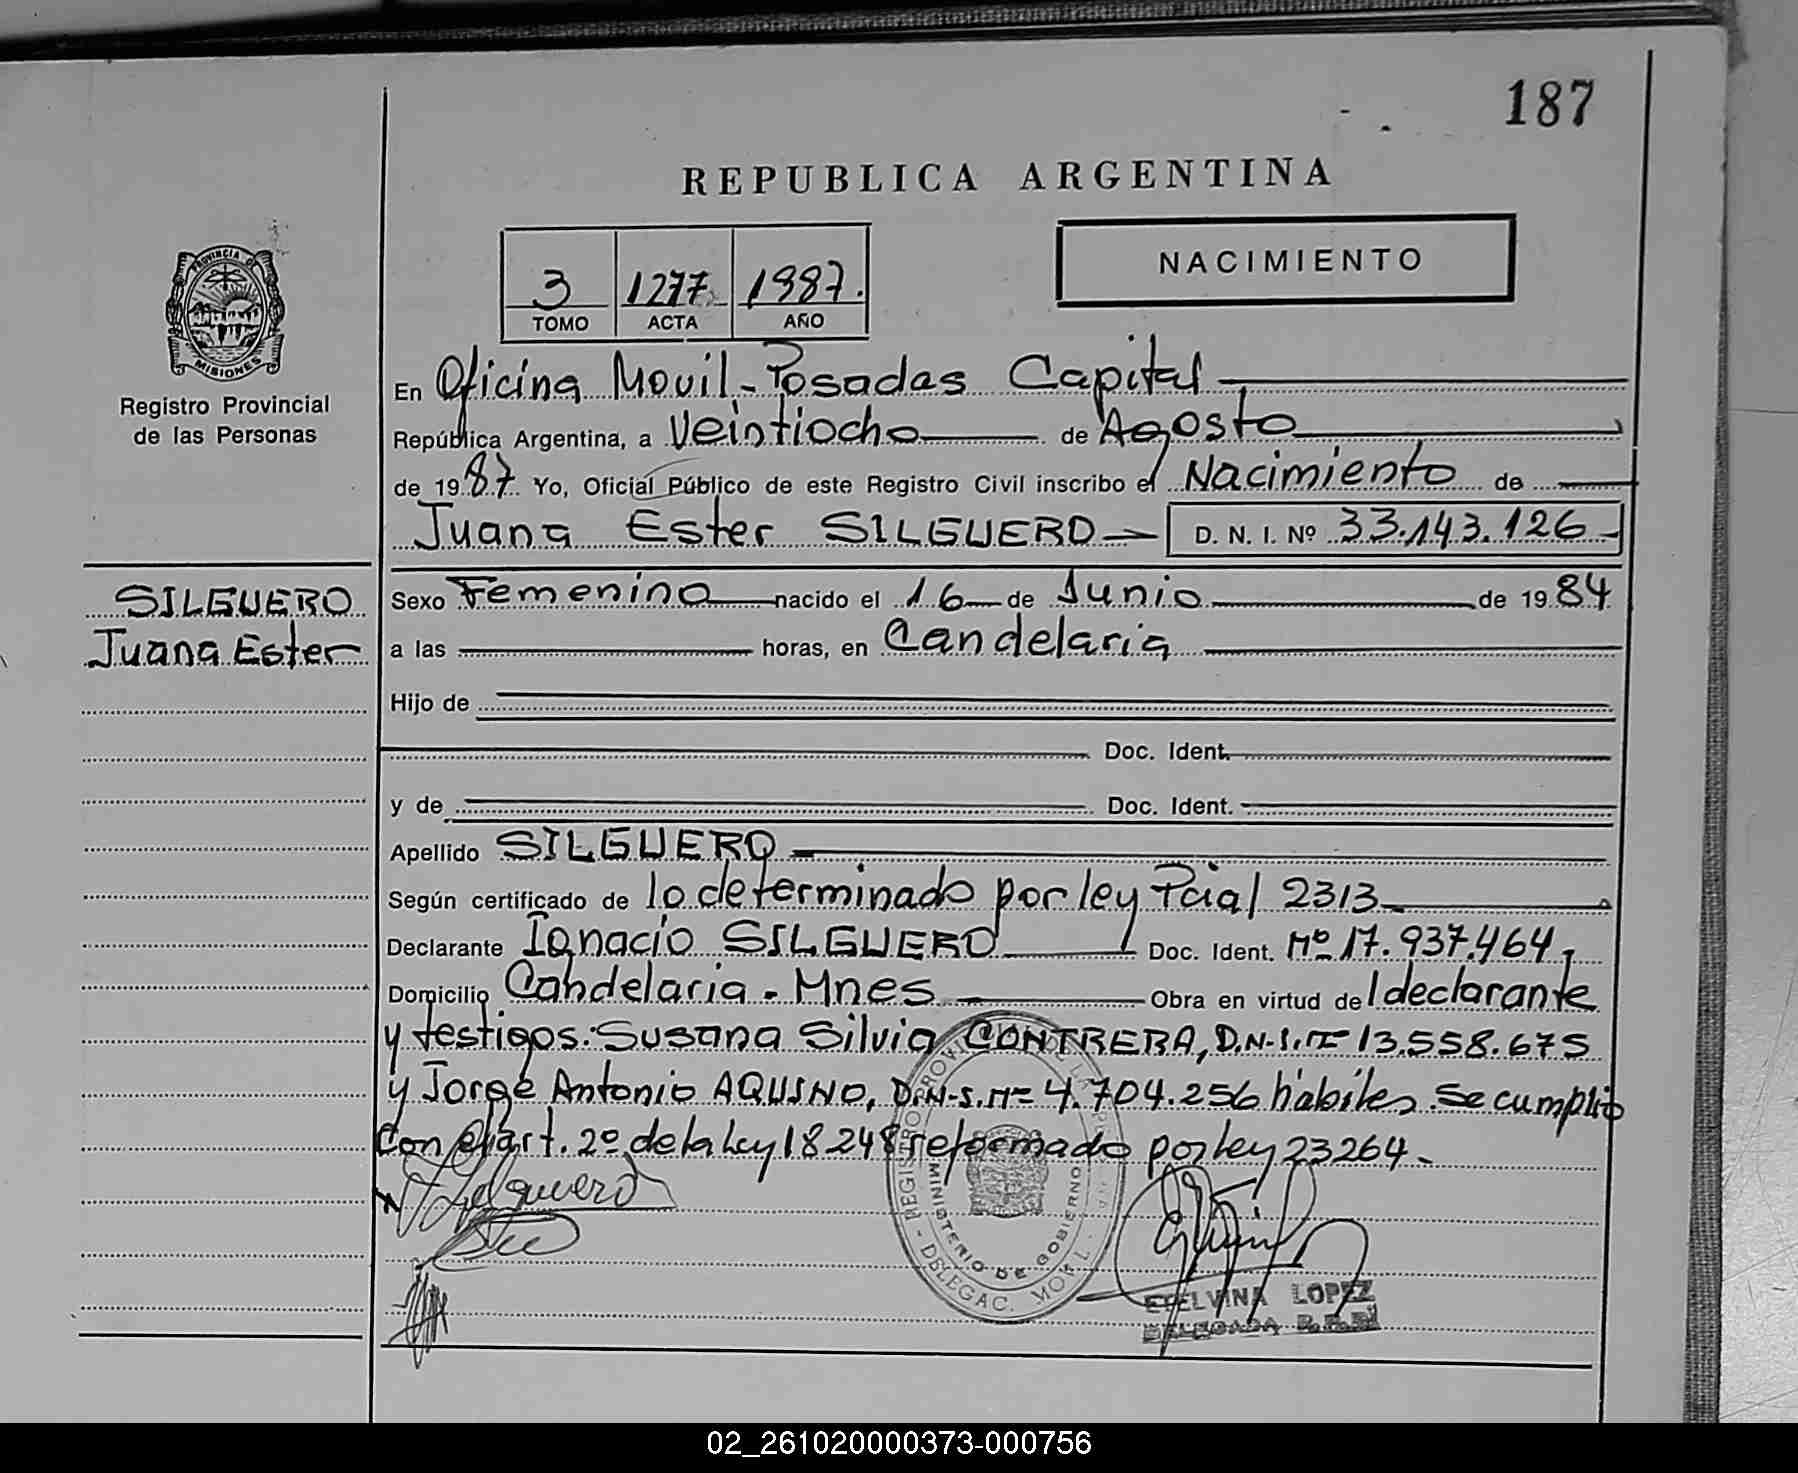 187
REPUBLICA ARGENTINA
NACIMIENTO
3 1277 1987.
TOMO ACTA AÑO
PROVINCIA DE MISIONES
Registro Provincial
de las Personas
En Oficina Movil - Posadas Capital
República Argentina, a Veintiocho de Agosto
de 1987. Yo, Oficial Público de este Registro Civil inscribo el Nacimiento de
Juana Ester SILGUERO D. N. I. Nº 33.143.126
SILGUERO
Juana Ester
Sexo Femenino nacido el 16 de Junio de 1984
a las horas, en Candelaria
Hijo de
Doc. Ident.
y de Doc. Ident.
Apellido SILGUERO
Según certificado de lo determinado por ley Pcial 2313
Declarante Ignacio SILGUERO Doc. Ident. Nº 17.937.464
Domicilio Candelaria - Mnes Obra en virtud del declarante
y testigos: Susana Silvia CONTRERA, D.N.I. Nº 13.558.675
y Jorge Antonio AQUINO, D.N.I. Nº 4.704.256 hábiles. Se cumplió
con el art. 2º de la Ley 18248 reformado por ley 23264.
REGISTRO PROVINCIAL DE LAS PERSONAS
MINISTERIO DE GOBIERNO
- DELEGAC. MOVIL -
ETELVINA LOPEZ
DELEGADA
02_261020000373-000756